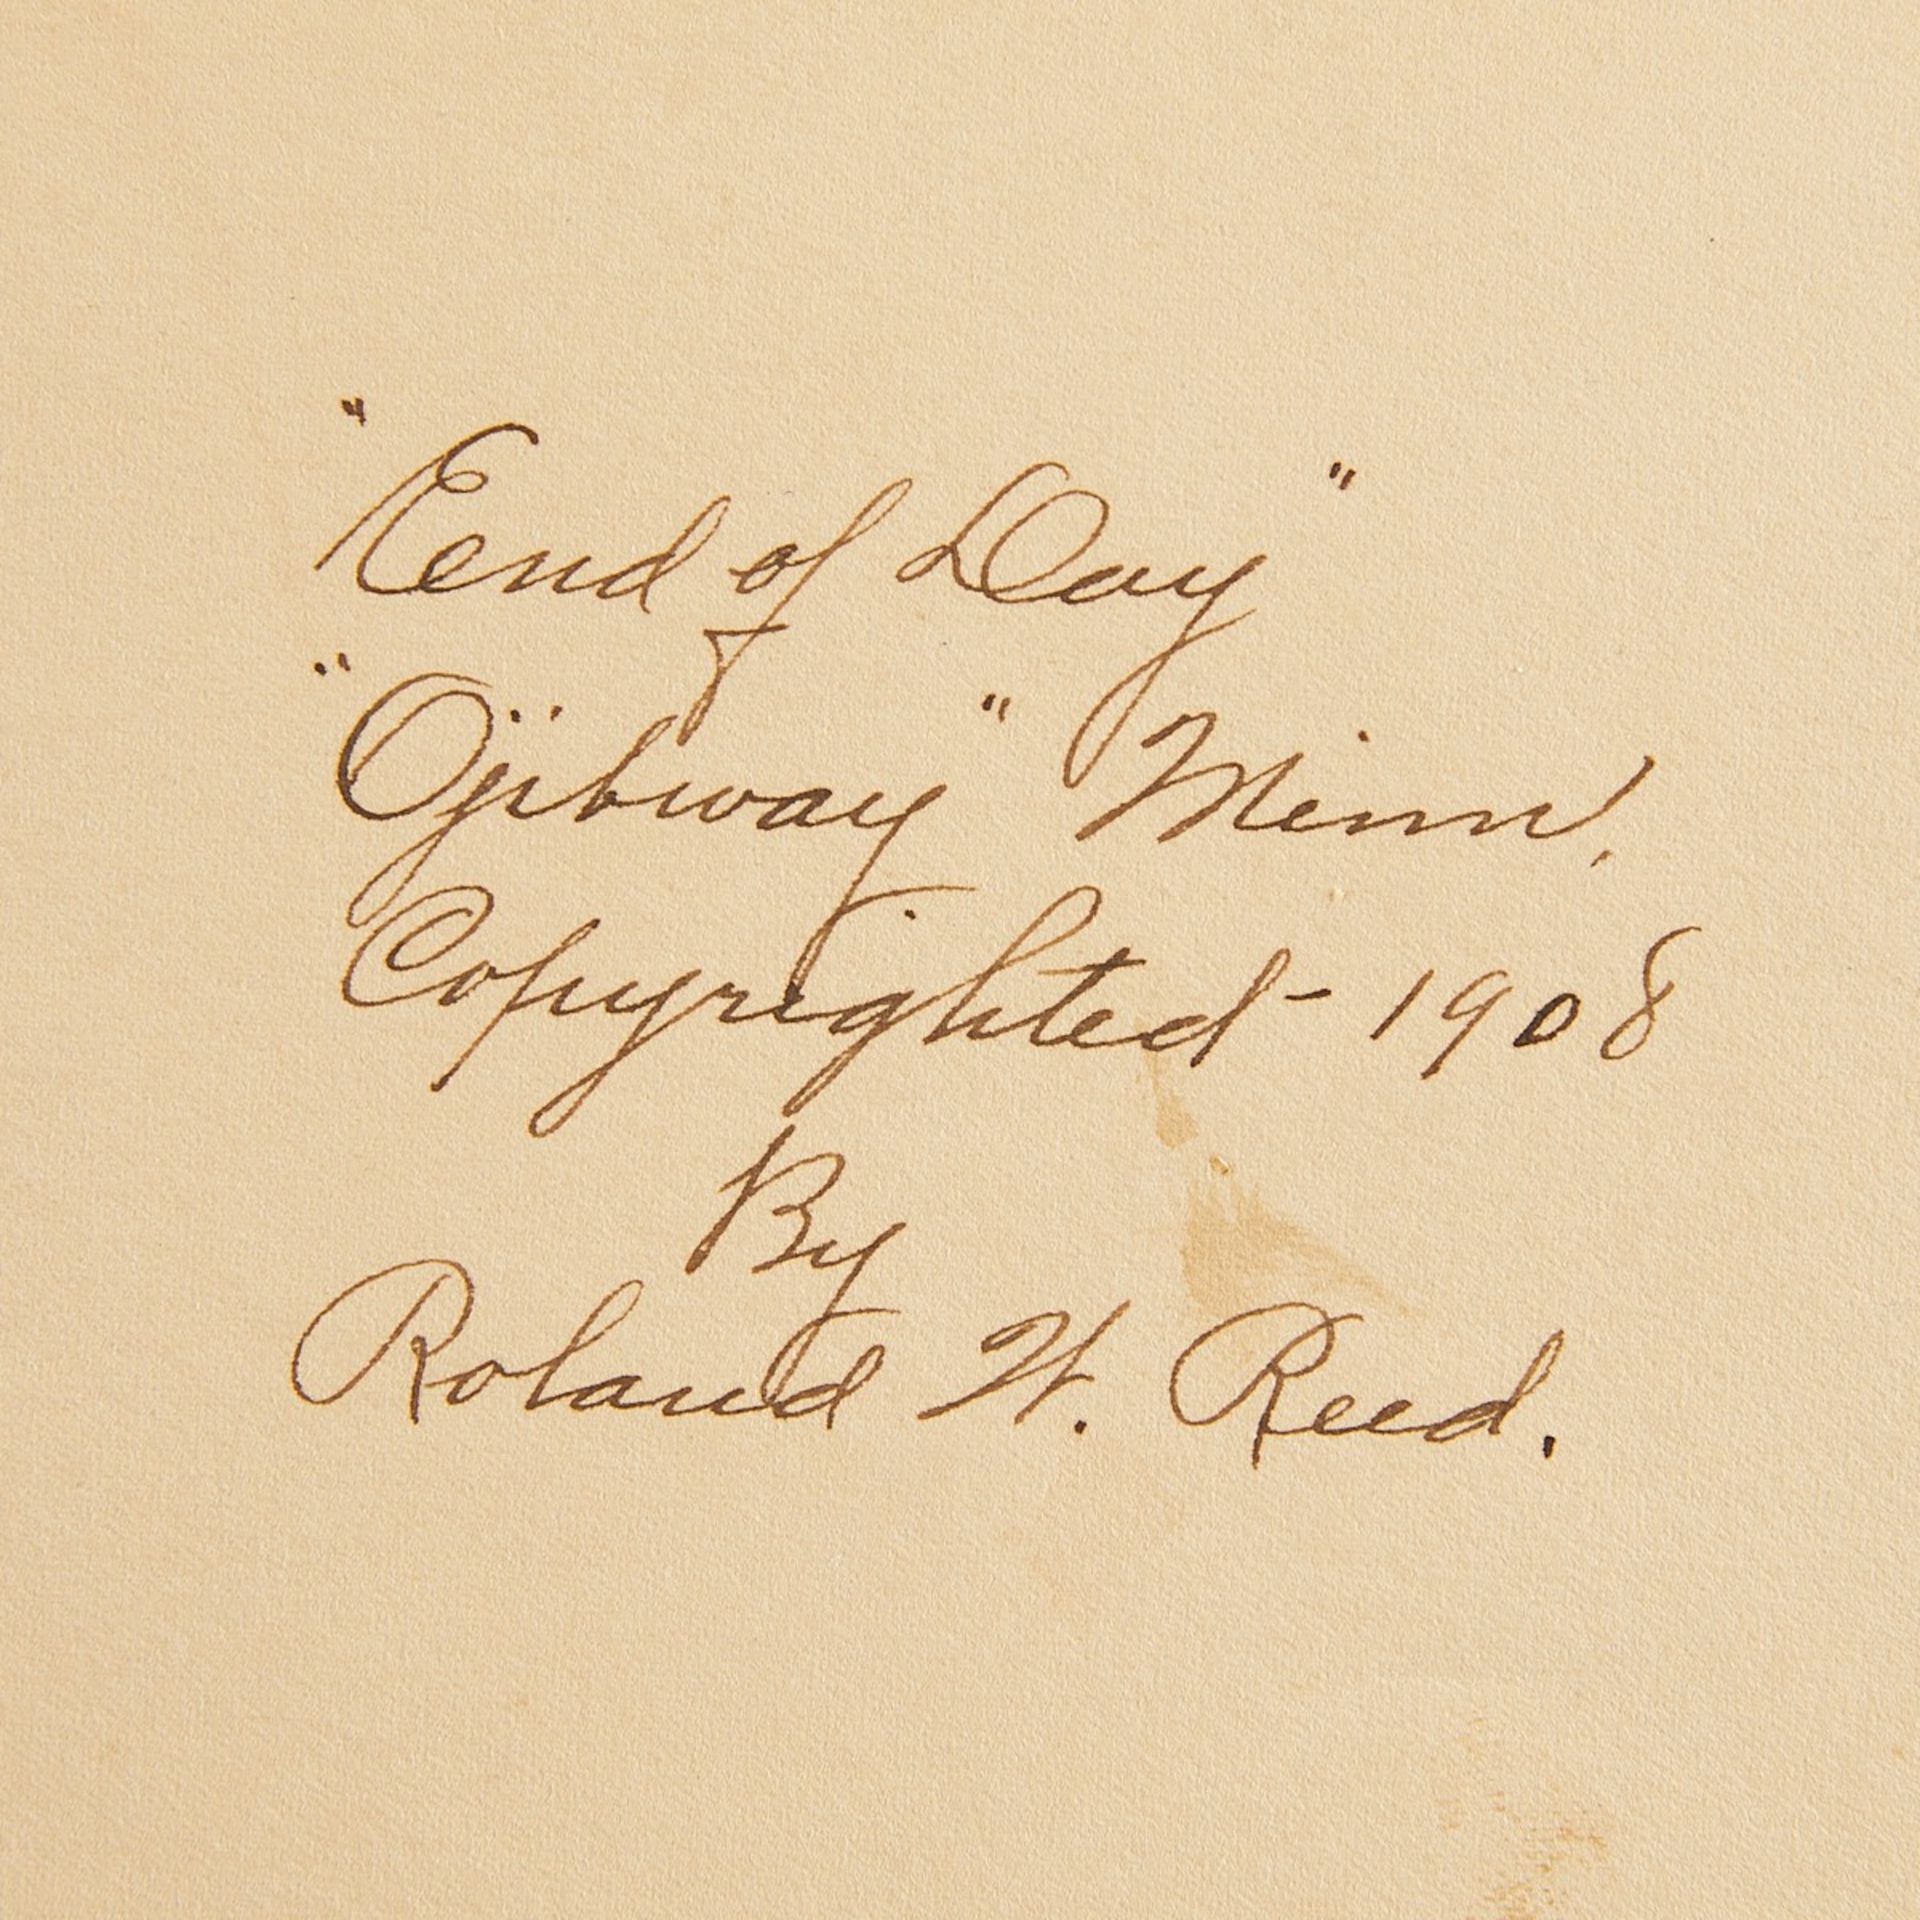 "End of Day"
"Ojibway" Minn.
Copyrighted - 1908
By
Roland W. Reed.